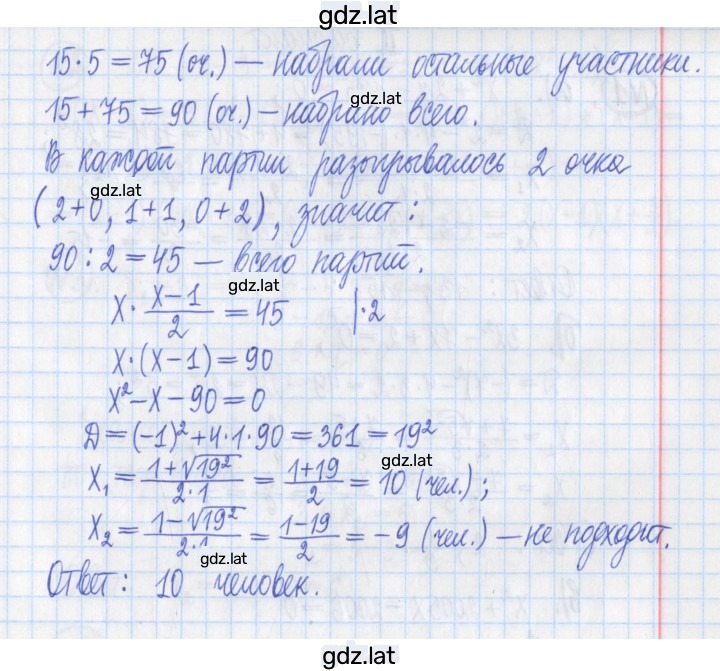 gdz.lat
15·5=75 (оч.) — набрали остальные участники.
gdz.lat
15+75=90 (оч.) — набрано всего.
В каждой партии разыгрывалось 2 очка
gdz.lat
(2+0, 1+1, 0+2), значит:
90:2=45 — всего партий.
gdz.lat
x·\frac{x-1}{2}=45 |·2
x·(x-1)=90
x²-x-90=0
Д=(-1)²+4·1·90=361=19²
gdz.lat
x₁=\frac{1+√19²}{2·1}=\frac{1+19}{2}=10 (чел.);
x₂=\frac{1-√19²}{2·1}=\frac{1-19}{2}=-9 (чел.) — не подходит.
gdz.lat
Ответ: 10 человек.
gdz.lat